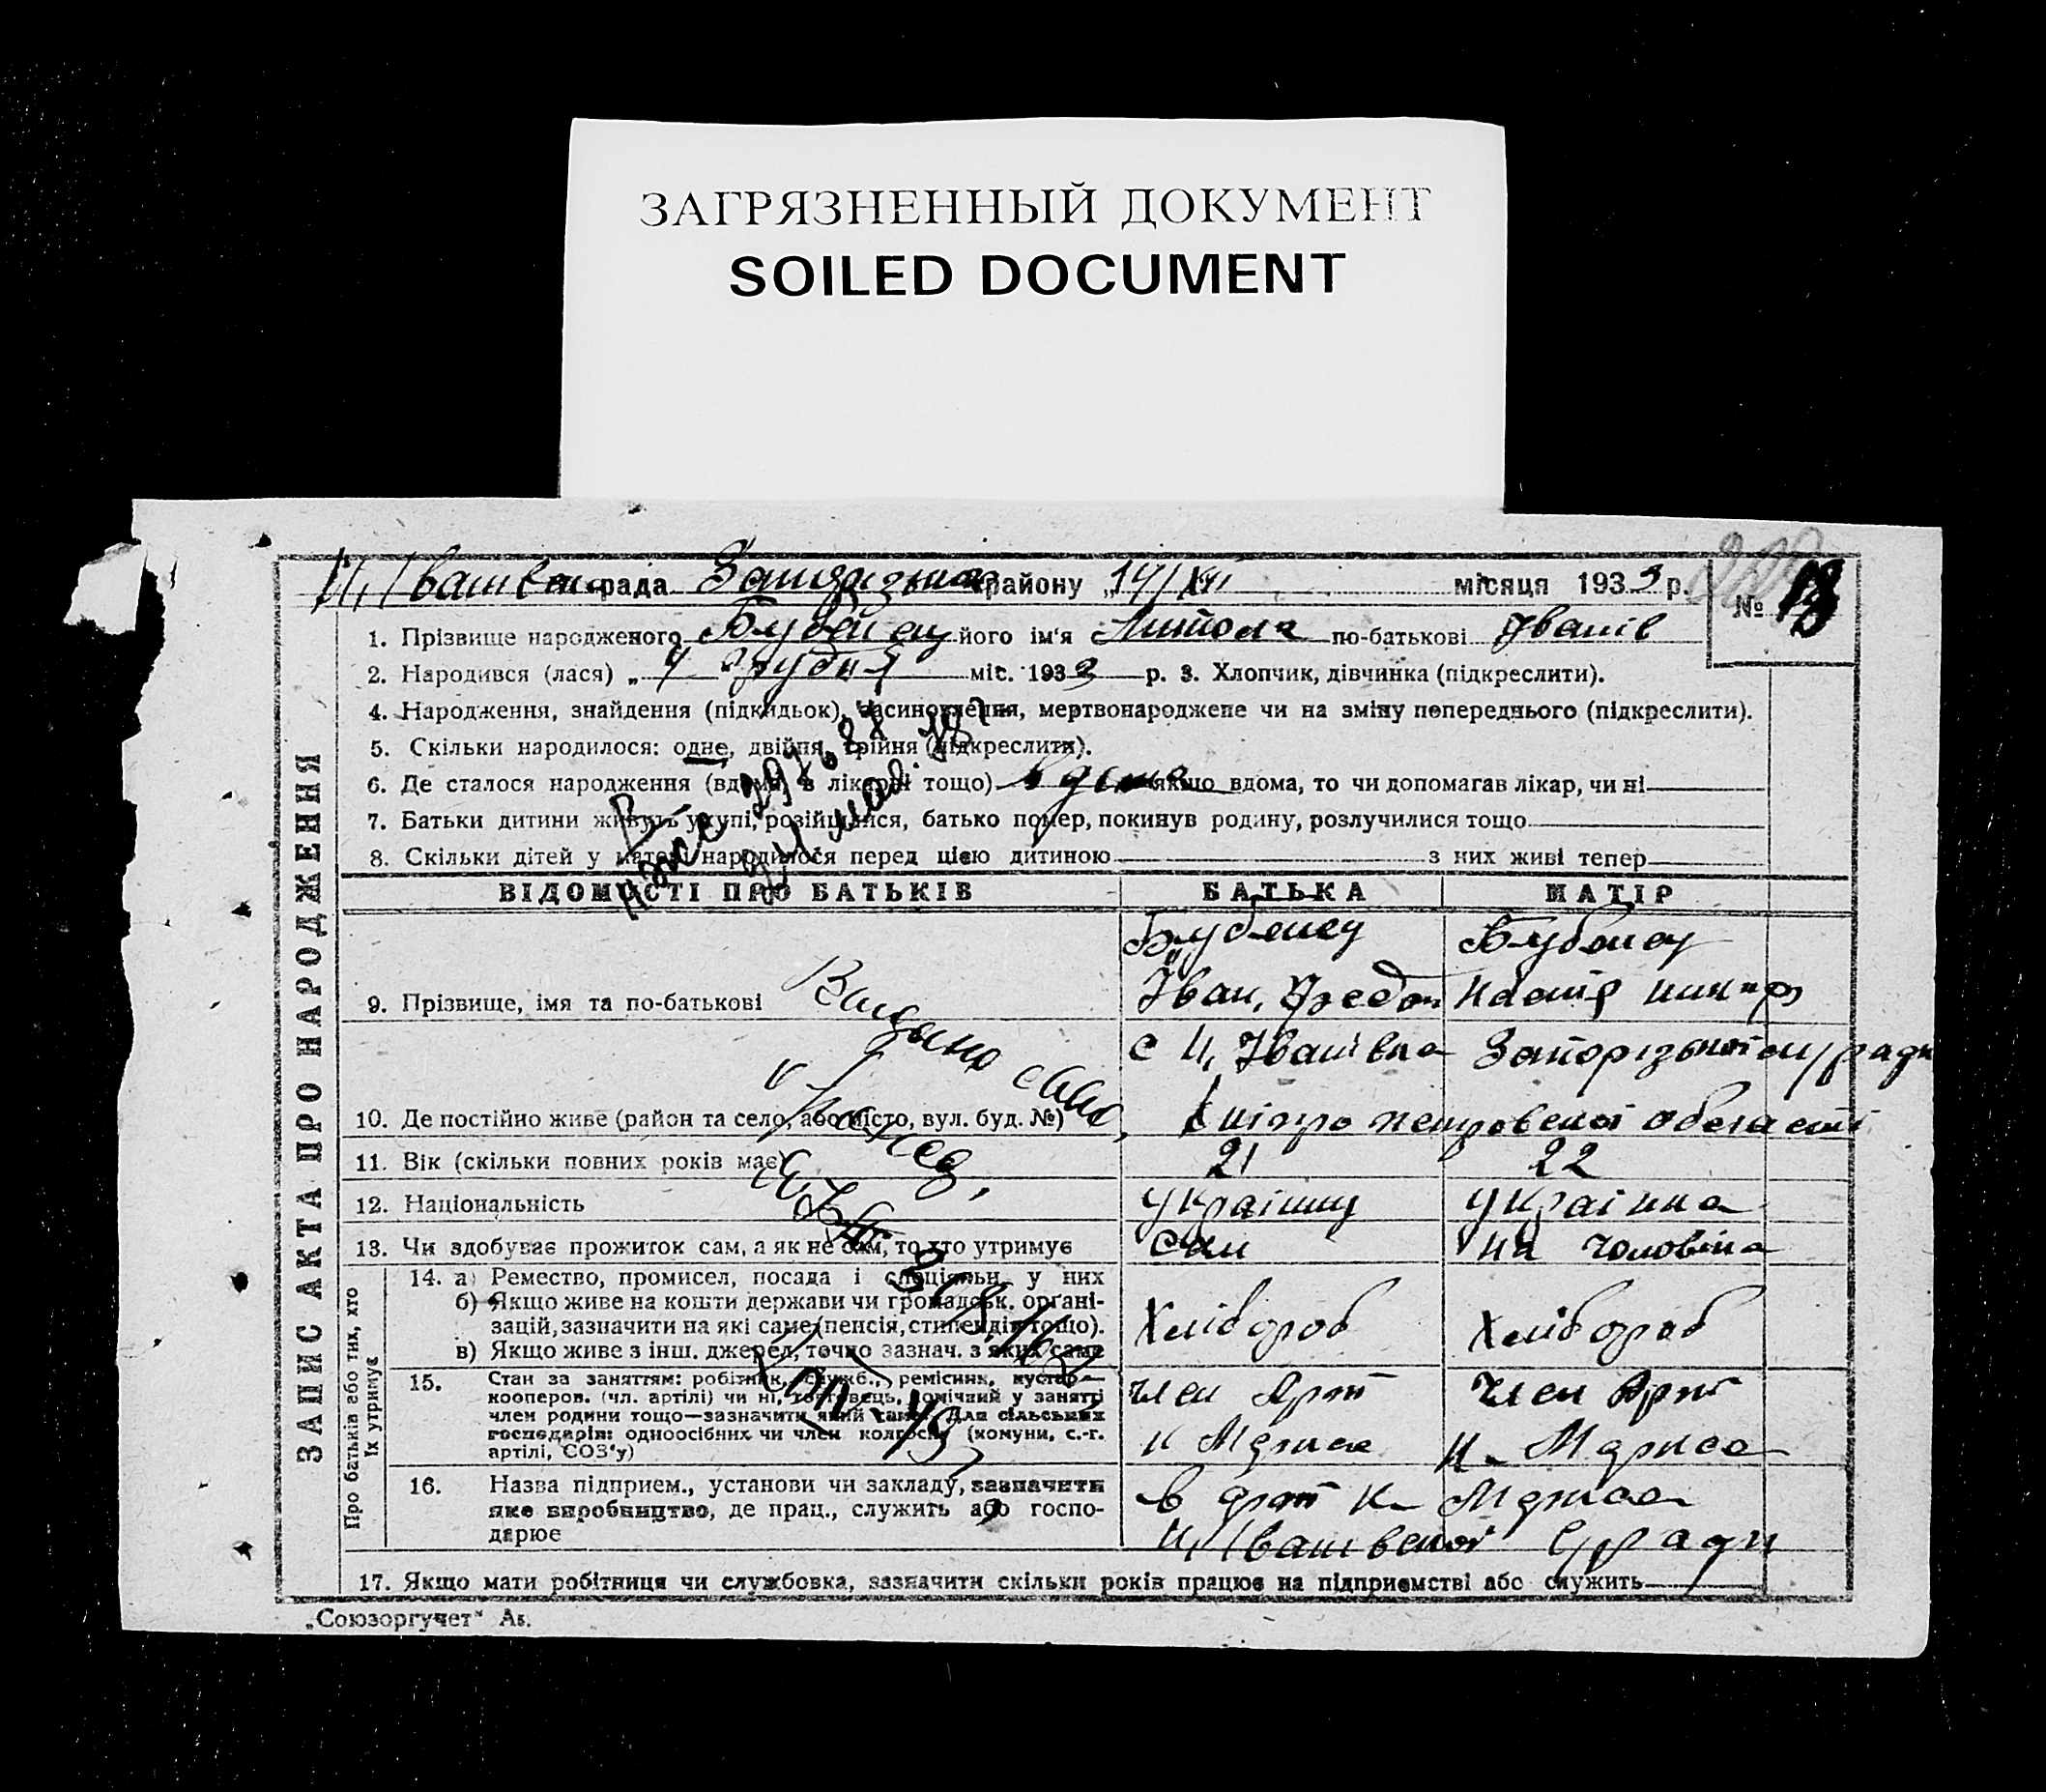 ЗАГРЯЗНЕННЫЙ ДОКУМЕНТ
SOILED DOCUMENT
рада району 14/XII місяця 1933 р. № 18
1. Прізвище народженого його ім'я по-батькові Іванів
2. Народився (лася) „ 4 грудня міс. 1933 р. 3. Хлопчик, дівчинка (підкреслити).
4. Народження, знайдення (підкидьок), засиновлення, мертвонароджене чи на зміну попереднього (підкреслити).
5. Скільки народилося: одне, двійня, трійня (підкреслити).
6. Де сталося народження (вдома, в лікарні тощо) вдома якщо вдома, то чи допомагав лікар, чи ні
7. Батьки дитини живуть укупі, розійшлися, батько помер, покинув родину, розлучилися тощо
8. Скільки дітей у матері народилося перед цією дитиною з них живі тепер
ЗАПИС АКТА ПРО НАРОДЖЕННЯ
ВІДОМОСТІ ПРО БАТЬКІВ БАТЬКА МАТІР
9. Прізвище, імя та по-батькові
Іван
с Ц, Іванівка Запорізької
10. Де постійно живе (район та село, або місто, вул. буд. №)
11. Вік (скільки повних років має) 21 22
12. Національність Українец Українка
13. Чи здобуває прожиток сам, а як не сам, то хто утримує сам на чоловіка
Про батьків або тих, хто їх утримує
14. а) Ремество, промисел, посада і спеціяльн. у них
б) Якщо живе на кошти держави чи громадськ. органі-
зацій, зазначити на які саме (пенсія, стипендія тощо).
в) Якщо живе з інш. джерел, точно зазнач. з яких саме
Хлібороб Хлібороб
15. Стан за заняттям: робітник, служб., ремісник, кустар—
кооперов. (чл. артілі) чи ні, торговець, помічний у занятті
член родини тощо—зазначити який саме. Для сільських
господарів: одноосібник чи член колгоспу (комуни, с.-г.
артілі, СОЗ'у)
член Арт член Арт
к Маркса к. Маркса
16. Назва підприєм., установи чи закладу, зазначити
яке виробництво, де прац., служить або госпо-
дарює
в арт к Маркса
Ц, Іванівської С/ради
17. Якщо мати робітниця чи службовка, зазначити скільки років працює на підприємстві або служить
„Союзоргучет“
Видано